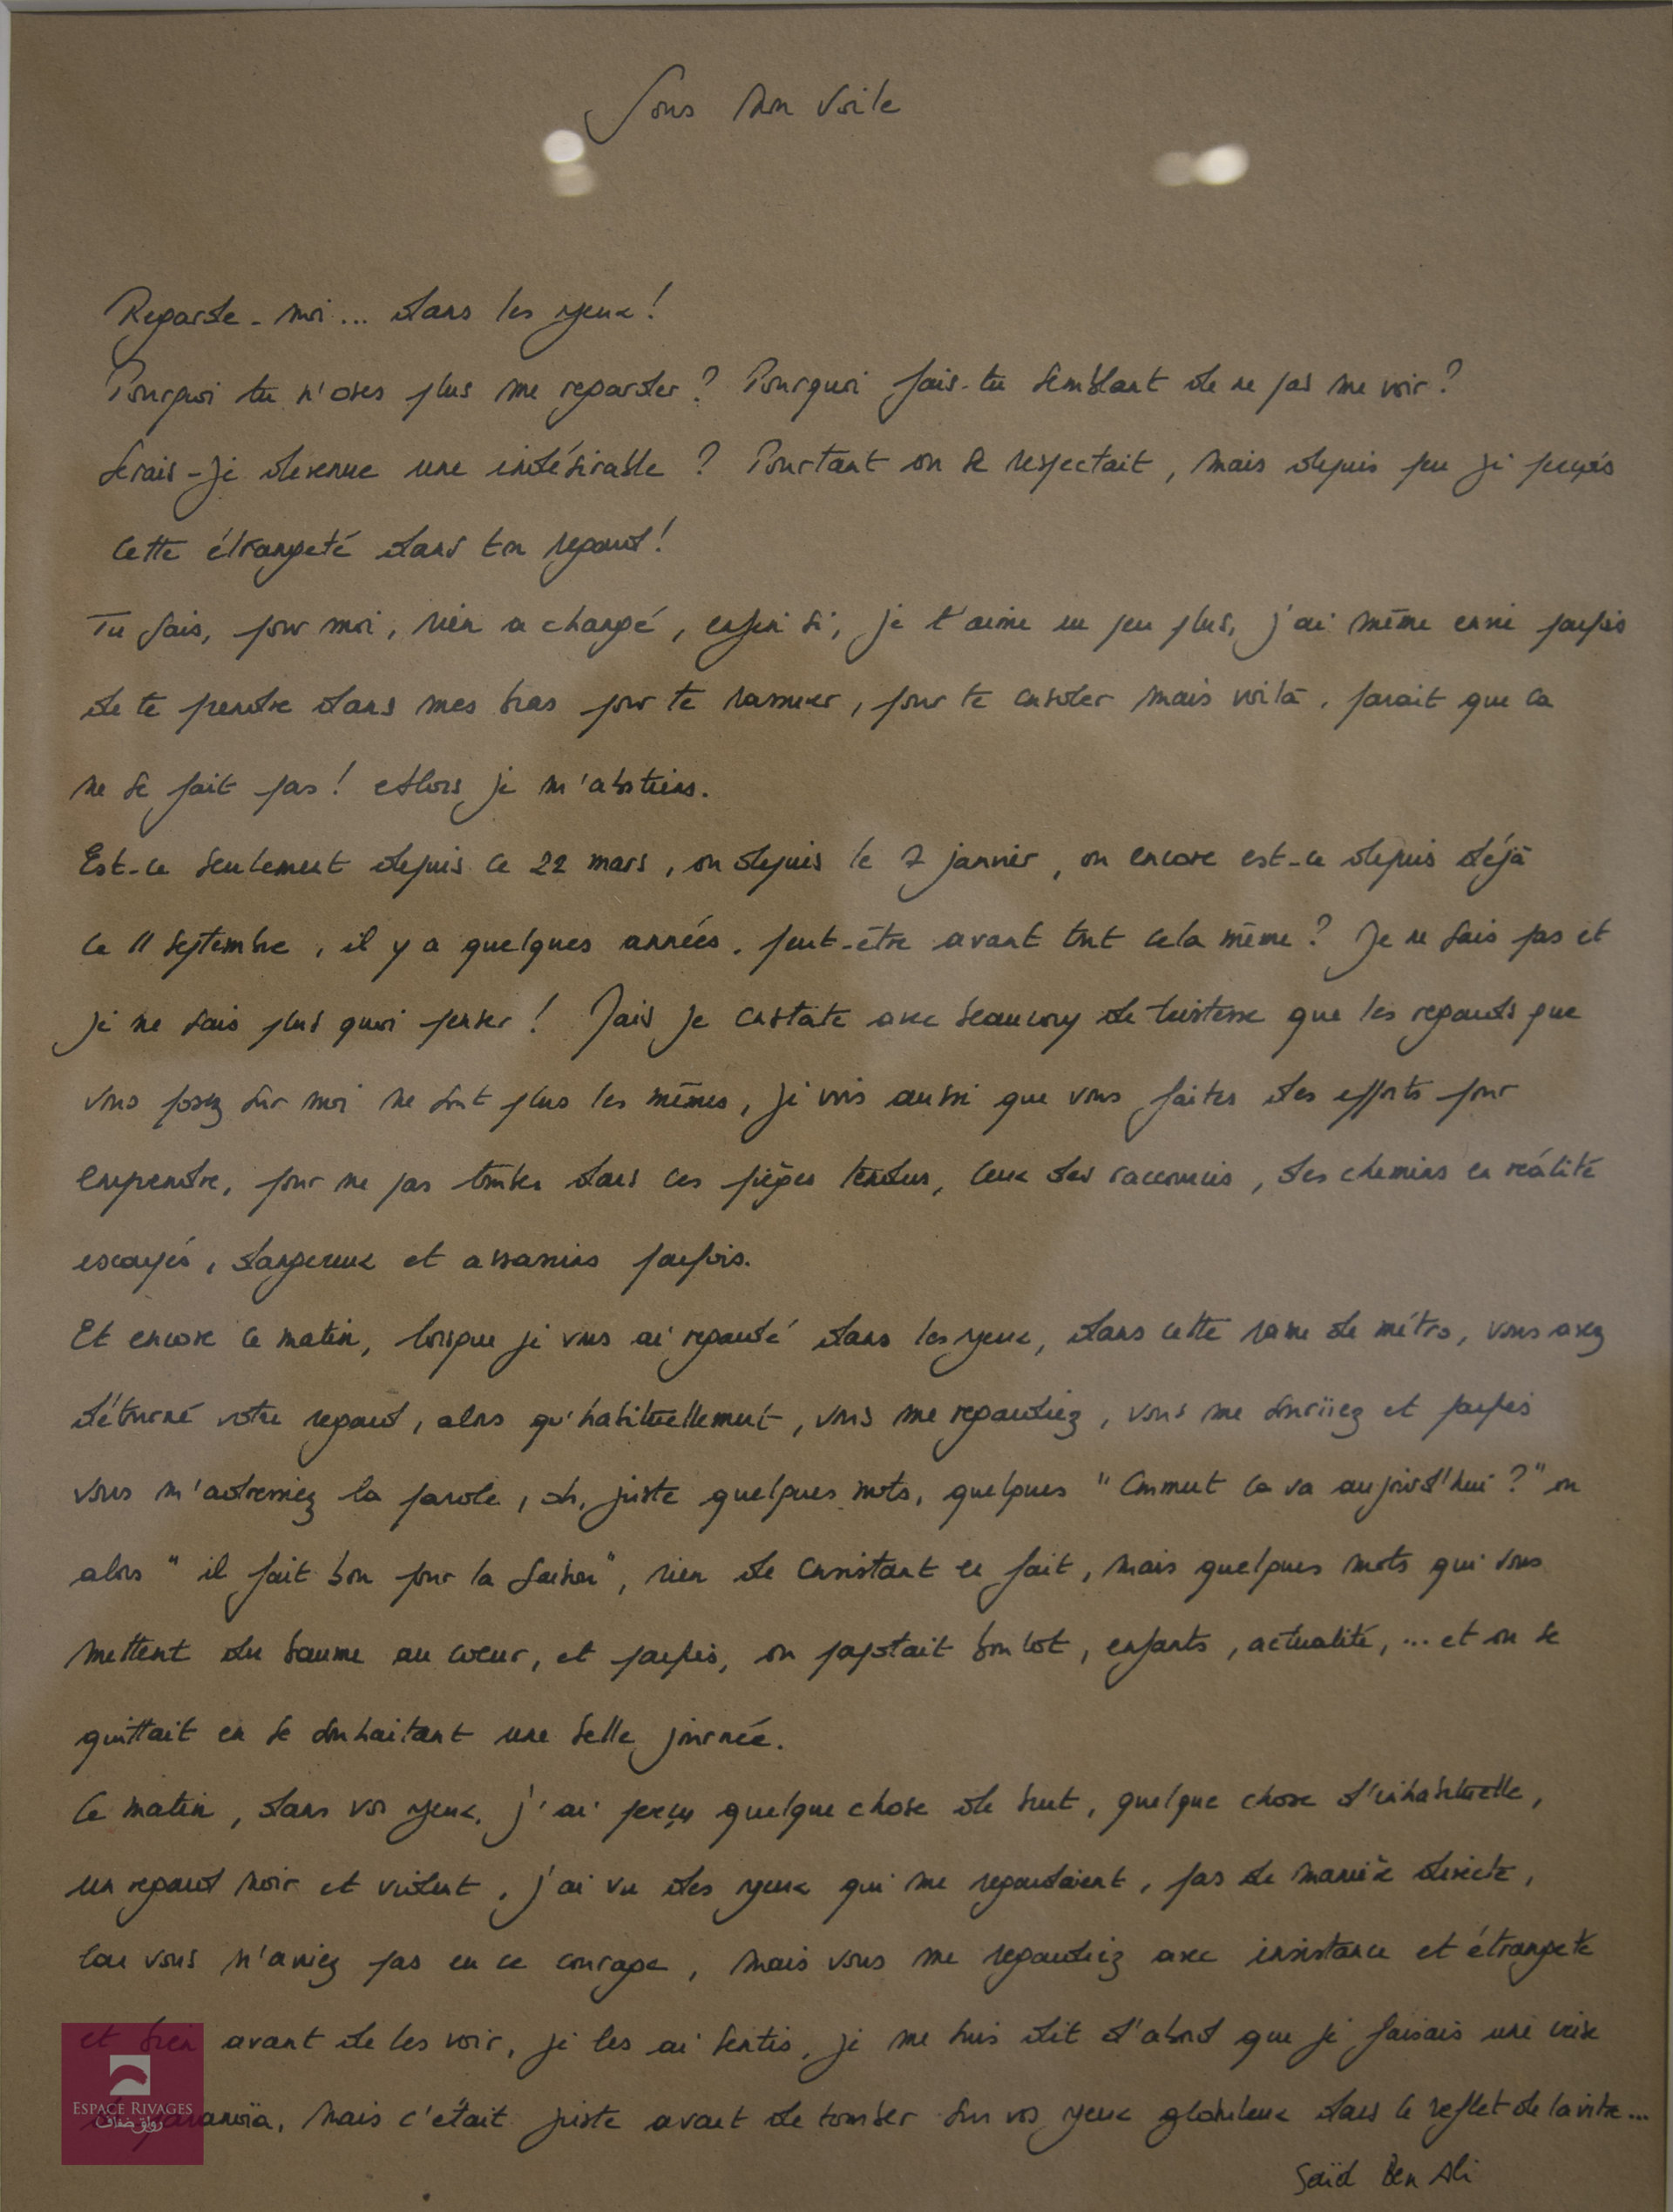 Sous Mon Voile
Regarde-moi... dans les yeux!
Pourquoi tu n'oses plus me regarder? Pourquoi fais-tu semblant de ne pas me voir?
Serais-je devenue une indésirable? Pourtant on se respectait, mais depuis peu je perçois
cette étrangeté dans ton regard!
Tu sais, pour moi, rien a changé, enfin si, je t'aime un peu plus, j'ai même envie parfois
de te prendre dans mes bras pour te rassurer, pour te consoler mais voilà, parait que ça
ne se fait pas! Alors je m'abstiens.
Est-ce seulement depuis ce 22 mars, ou depuis le 7 janvier, ou encore est-ce depuis déjà
ce 11 septembre, il y a quelques années, peut-être avant tout cela même? Je ne sais pas et
je ne sais plus quoi penser! Mais je constate avec beaucoup de tristesse que les regards que
vous posez sur moi ne sont plus les mêmes, je vois aussi que vous faites des efforts pour
comprendre, pour ne pas tomber dans ces pièges tendus, ceux des raccourcis, des chemins en réalité
escarpés, dangereux et assassins parfois.
Et encore ce matin, lorsque je vous ai regardé dans les yeux, dans cette rame de métro, vous avez
détourné votre regard, alors qu'habituellement, vous me regardiez, vous me souriiez et parfois
vous m'adressiez la parole, oh, juste quelques mots, quelques "Comment ça va aujourd'hui?" ou
alors "il fait bon pour la saison", rien de consistant en fait, mais quelques mots qui vous
mettent du baume au cœur, et parfois, on papotait boulot, enfants, actualité,... et on se
quittait en se souhaitant une belle journée.
Ce matin, dans vos yeux, j'ai perçu quelque chose de brut, quelque chose d'inhabituelle,
un regard noir et violent, j'ai vu des yeux qui me regardaient, pas de manière directe,
car vous n'aviez pas eu ce courage, mais vous me regardiez avec insistance et étrangeté
et bien avant de les voir, je les ai sentis, je me suis dit d'abord que je faisais une crise
de paranoïa, mais c'était juste avant de tomber sur vos yeux globuleux dans le reflet de la vitre...
Saïd Ben Ali
ESPACE RIVAGES
رواق ضفاف